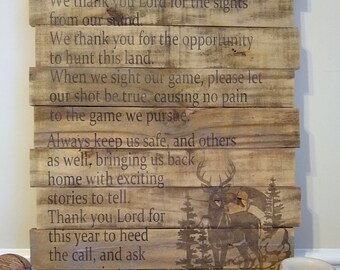 We thank you Lord for the sights
from our stand.
We thank you for the opportunity
to hunt this land.
When we sight our game, please let
our shot be true, causing no pain
to the game we pursue.
Always keep us safe, and others
as well, bringing us back
home with exciting
stories to tell.
Thank you Lord for
this year to heed
the call, and ask